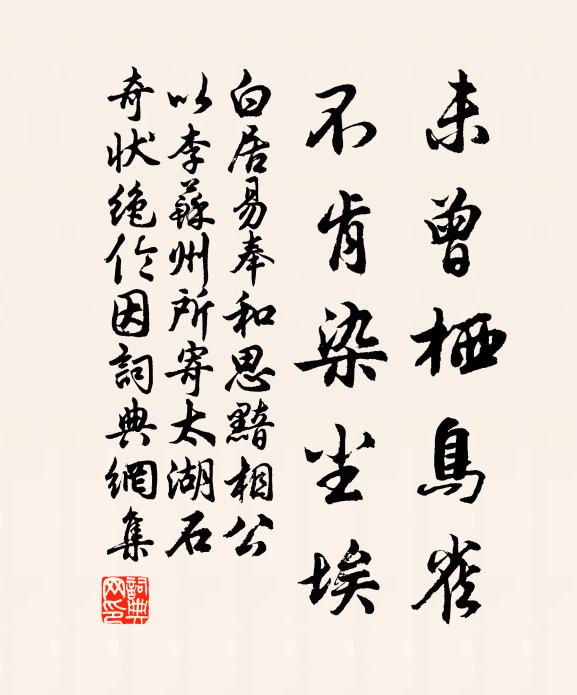 未曾栖鳥雀
不肯染尘埃
白居易奉和思黯相公
以李蘇州所寄太湖石
奇状绝伦因詞典網集
詞典
网印